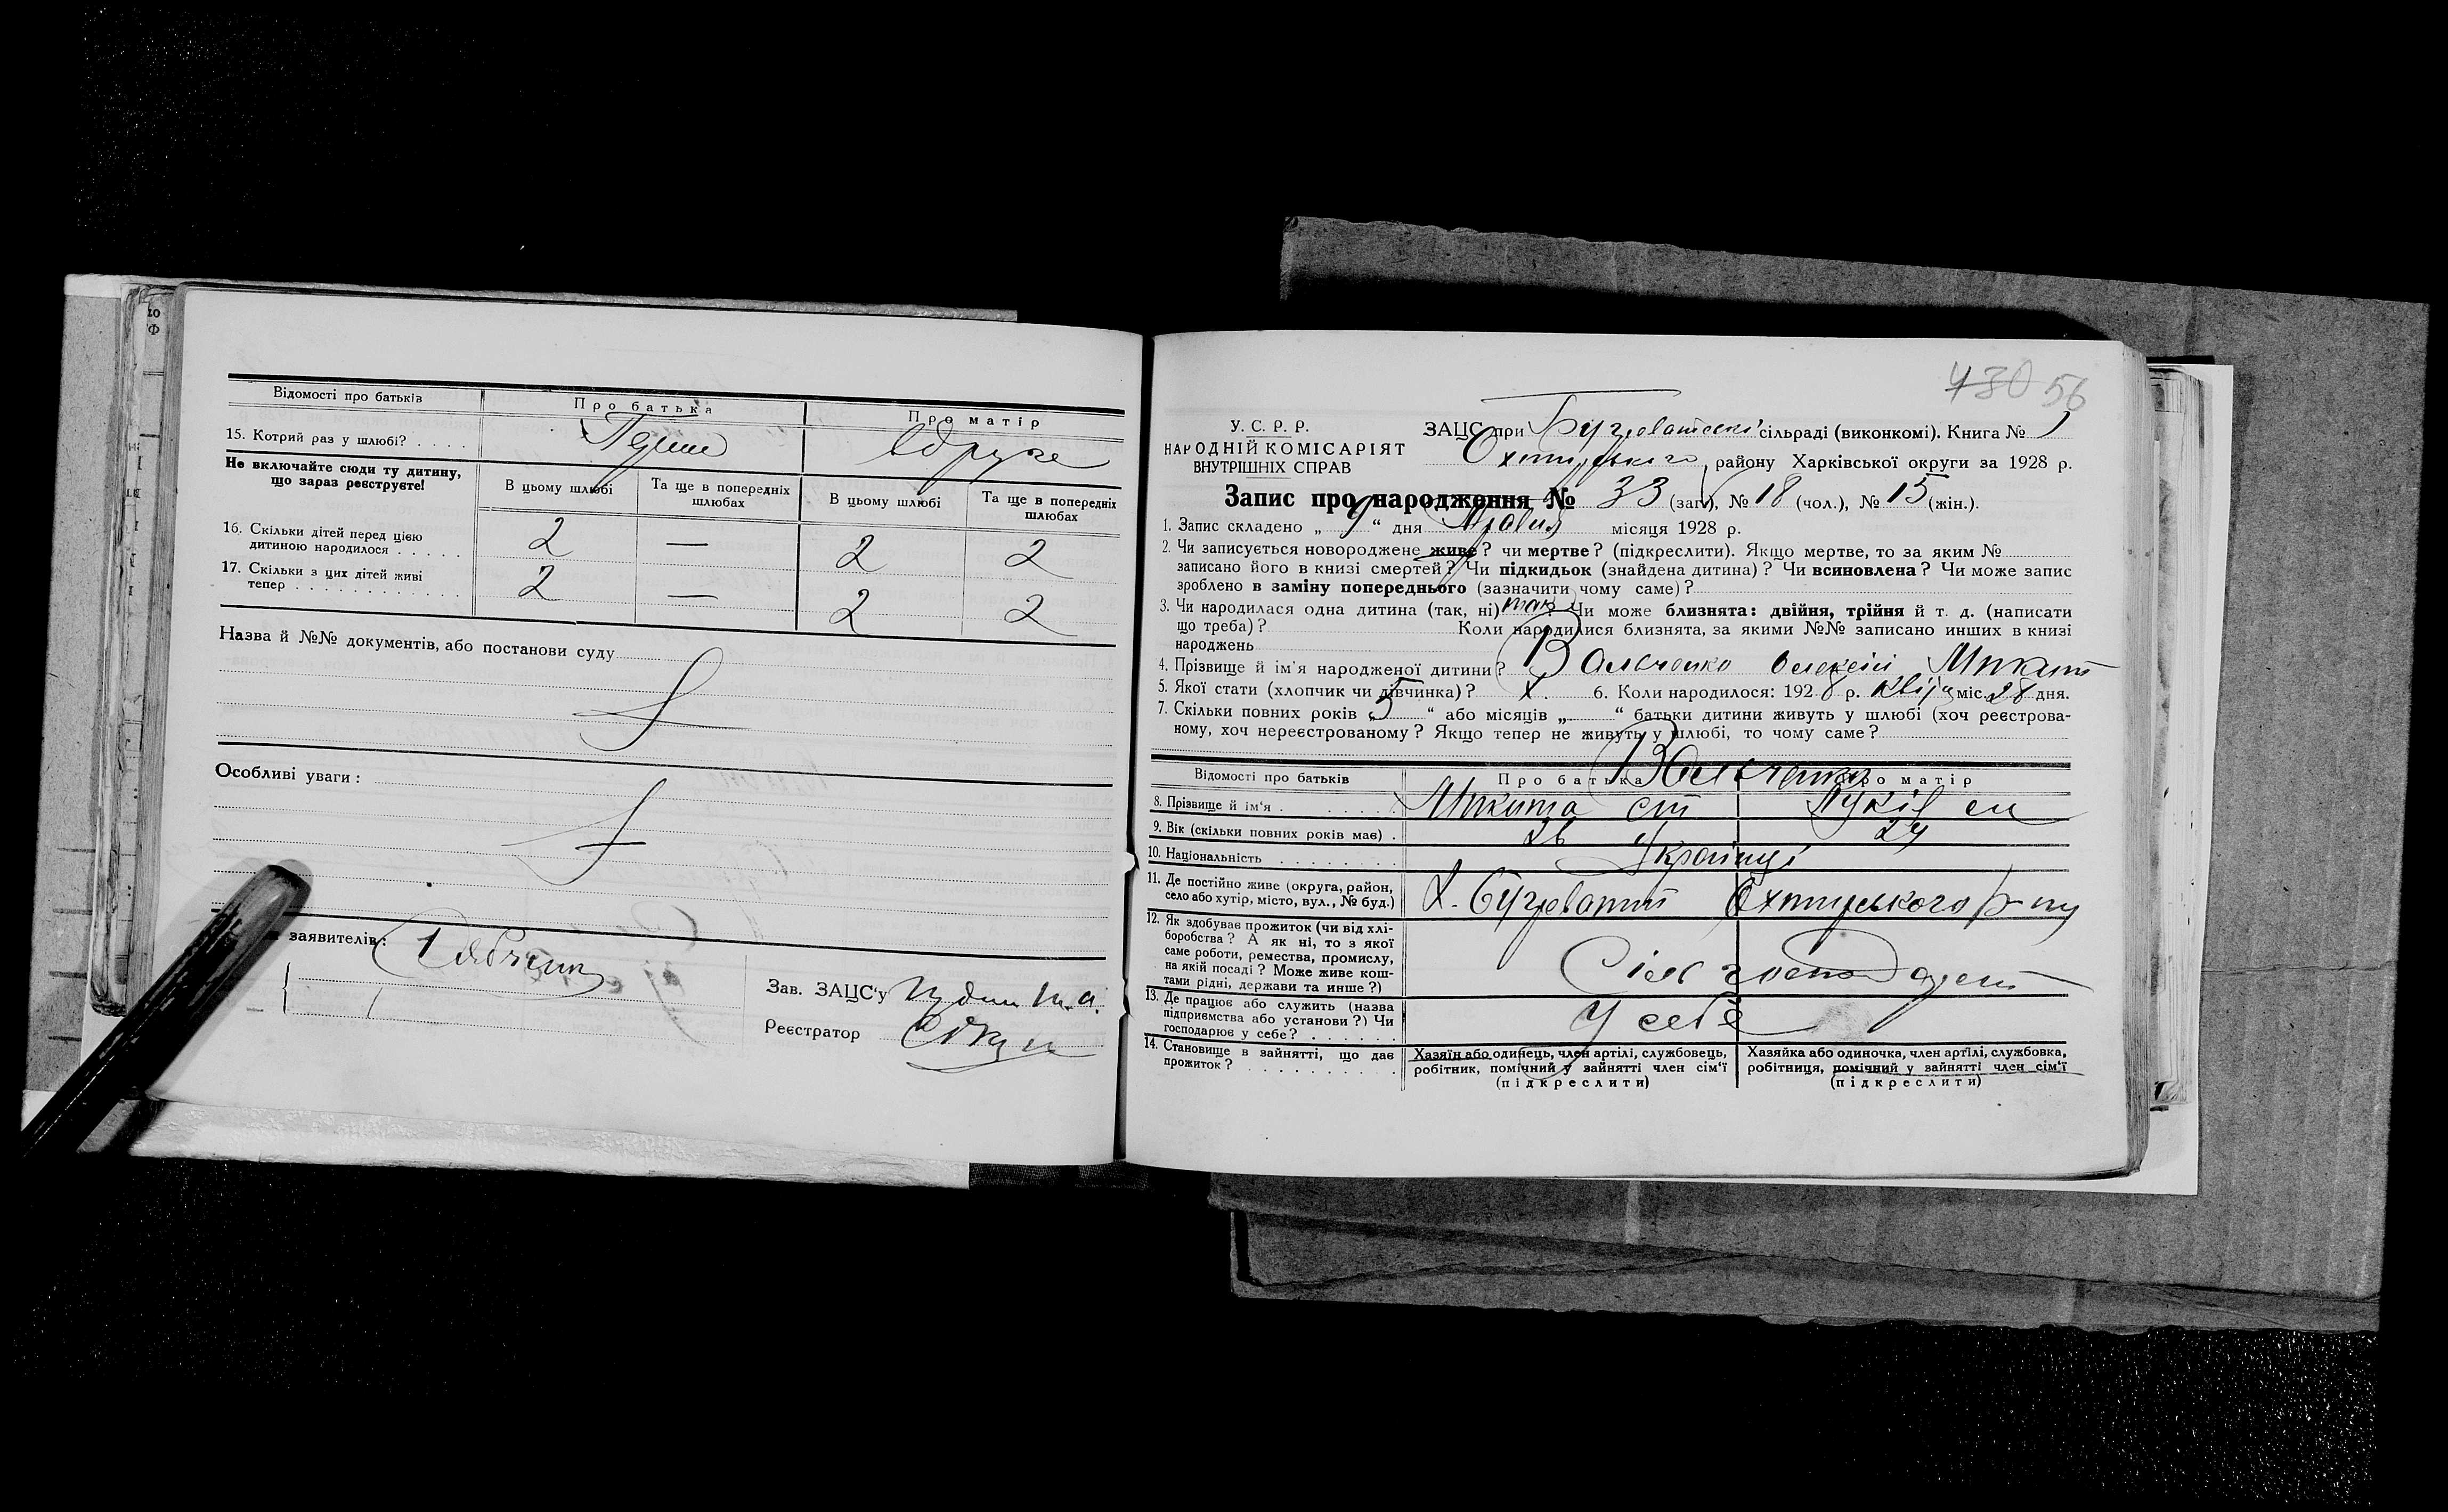 Відомості про батьків
Про батька
Про матір
15. Котрий раз у шлюбі? . . . .
вдруге
Не включайте сюди ту дитину,
що зараз реєструєте!
В цьому шлюбі
Та ще в попередніх
шлюбах
В цьому шлюбі
Та ще в попередніх
шлюбах
16. Скільки дітей перед цією
дитиною народилося . . . . .
2 — 2 2
17. Скільки з цих дітей живі
тепер . . . . . . . . . . . .
2 — 2 2
Назва й №№ документів, або постанови суду
Особливі уваги:
заявителів:
Зав. ЗАЦС'у
Реєстратор
730 56
У. С. Р. Р.
НАРОДНІЙ КОМІСАРІЯТ
ВНУТРІШНІХ СПРАВ
ЗАЦС при сільраді (виконкомі). Книга № 1
району Харківської округи за 1928 р.
Запис про народження № 33 (заг.), № 18 (чол.), № 15 (жін.).
1. Запис складено „ 9 “ дня Травня місяця 1928 р.
2. Чи записується новороджене живе? чи мертве? (підкреслити). Якщо мертве, то за яким №
записано його в книзі смертей? Чи підкидьок (знайдена дитина)? Чи всиновлена? Чи може запис
зроблено в заміну попереднього (зазначити чому саме)?
3. Чи народилася одна дитина (так, ні) так? Чи може близнята: двійня, трійня й т. д. (написати
що треба)? Коли народилися близнята, за якими №№ записано инших в книзі
народжень
4. Прізвище й ім'я народженої дитини? Олексій Микит
5. Якої стати (хлопчик чи дівчинка)? х. 6. Коли народилося: 1928 р. міс. 28 дня.
7. Скільки повних років „ 5 “ або місяців „ “ батьки дитини живуть у шлюбі (хоч реєстрова-
ному, хоч нереєстрованому? Якщо тепер не живуть у шлюбі, то чому саме?
Відомості про батьків
Про батька
Про матір
8. Прізвище й ім'я . . . . . .
Микита
9. Вік (скільки повних років має) .
26
10. Національність . . . . . . . .
Українці
11. Де постійно живе (округа, район,
село або хутір, місто, вул., № буд.)
Охтирського р-ну
12. Як здобуває прожиток (чи від хлі-
боробства? А як ні, то з якої
саме роботи, ремества, промислу,
на якій посаді? Може живе кош-
тами рідні, держави та инше?)
13. Де працює або служить (назва
підприємства або установи?) Чи
господарює у себе? . . . . . .
У себе
14. Становище в зайнятті, що дає
прожиток? . . . . . . . . . .
Хазяїн або одинець, член артілі, службовець,
робітник, помічний у зайнятті член сім'ї
(підкреслити)
Хазяйка або одиночка, член артілі, службовка,
робітниця, помічний у зайнятті член сім'ї
(підкреслити)